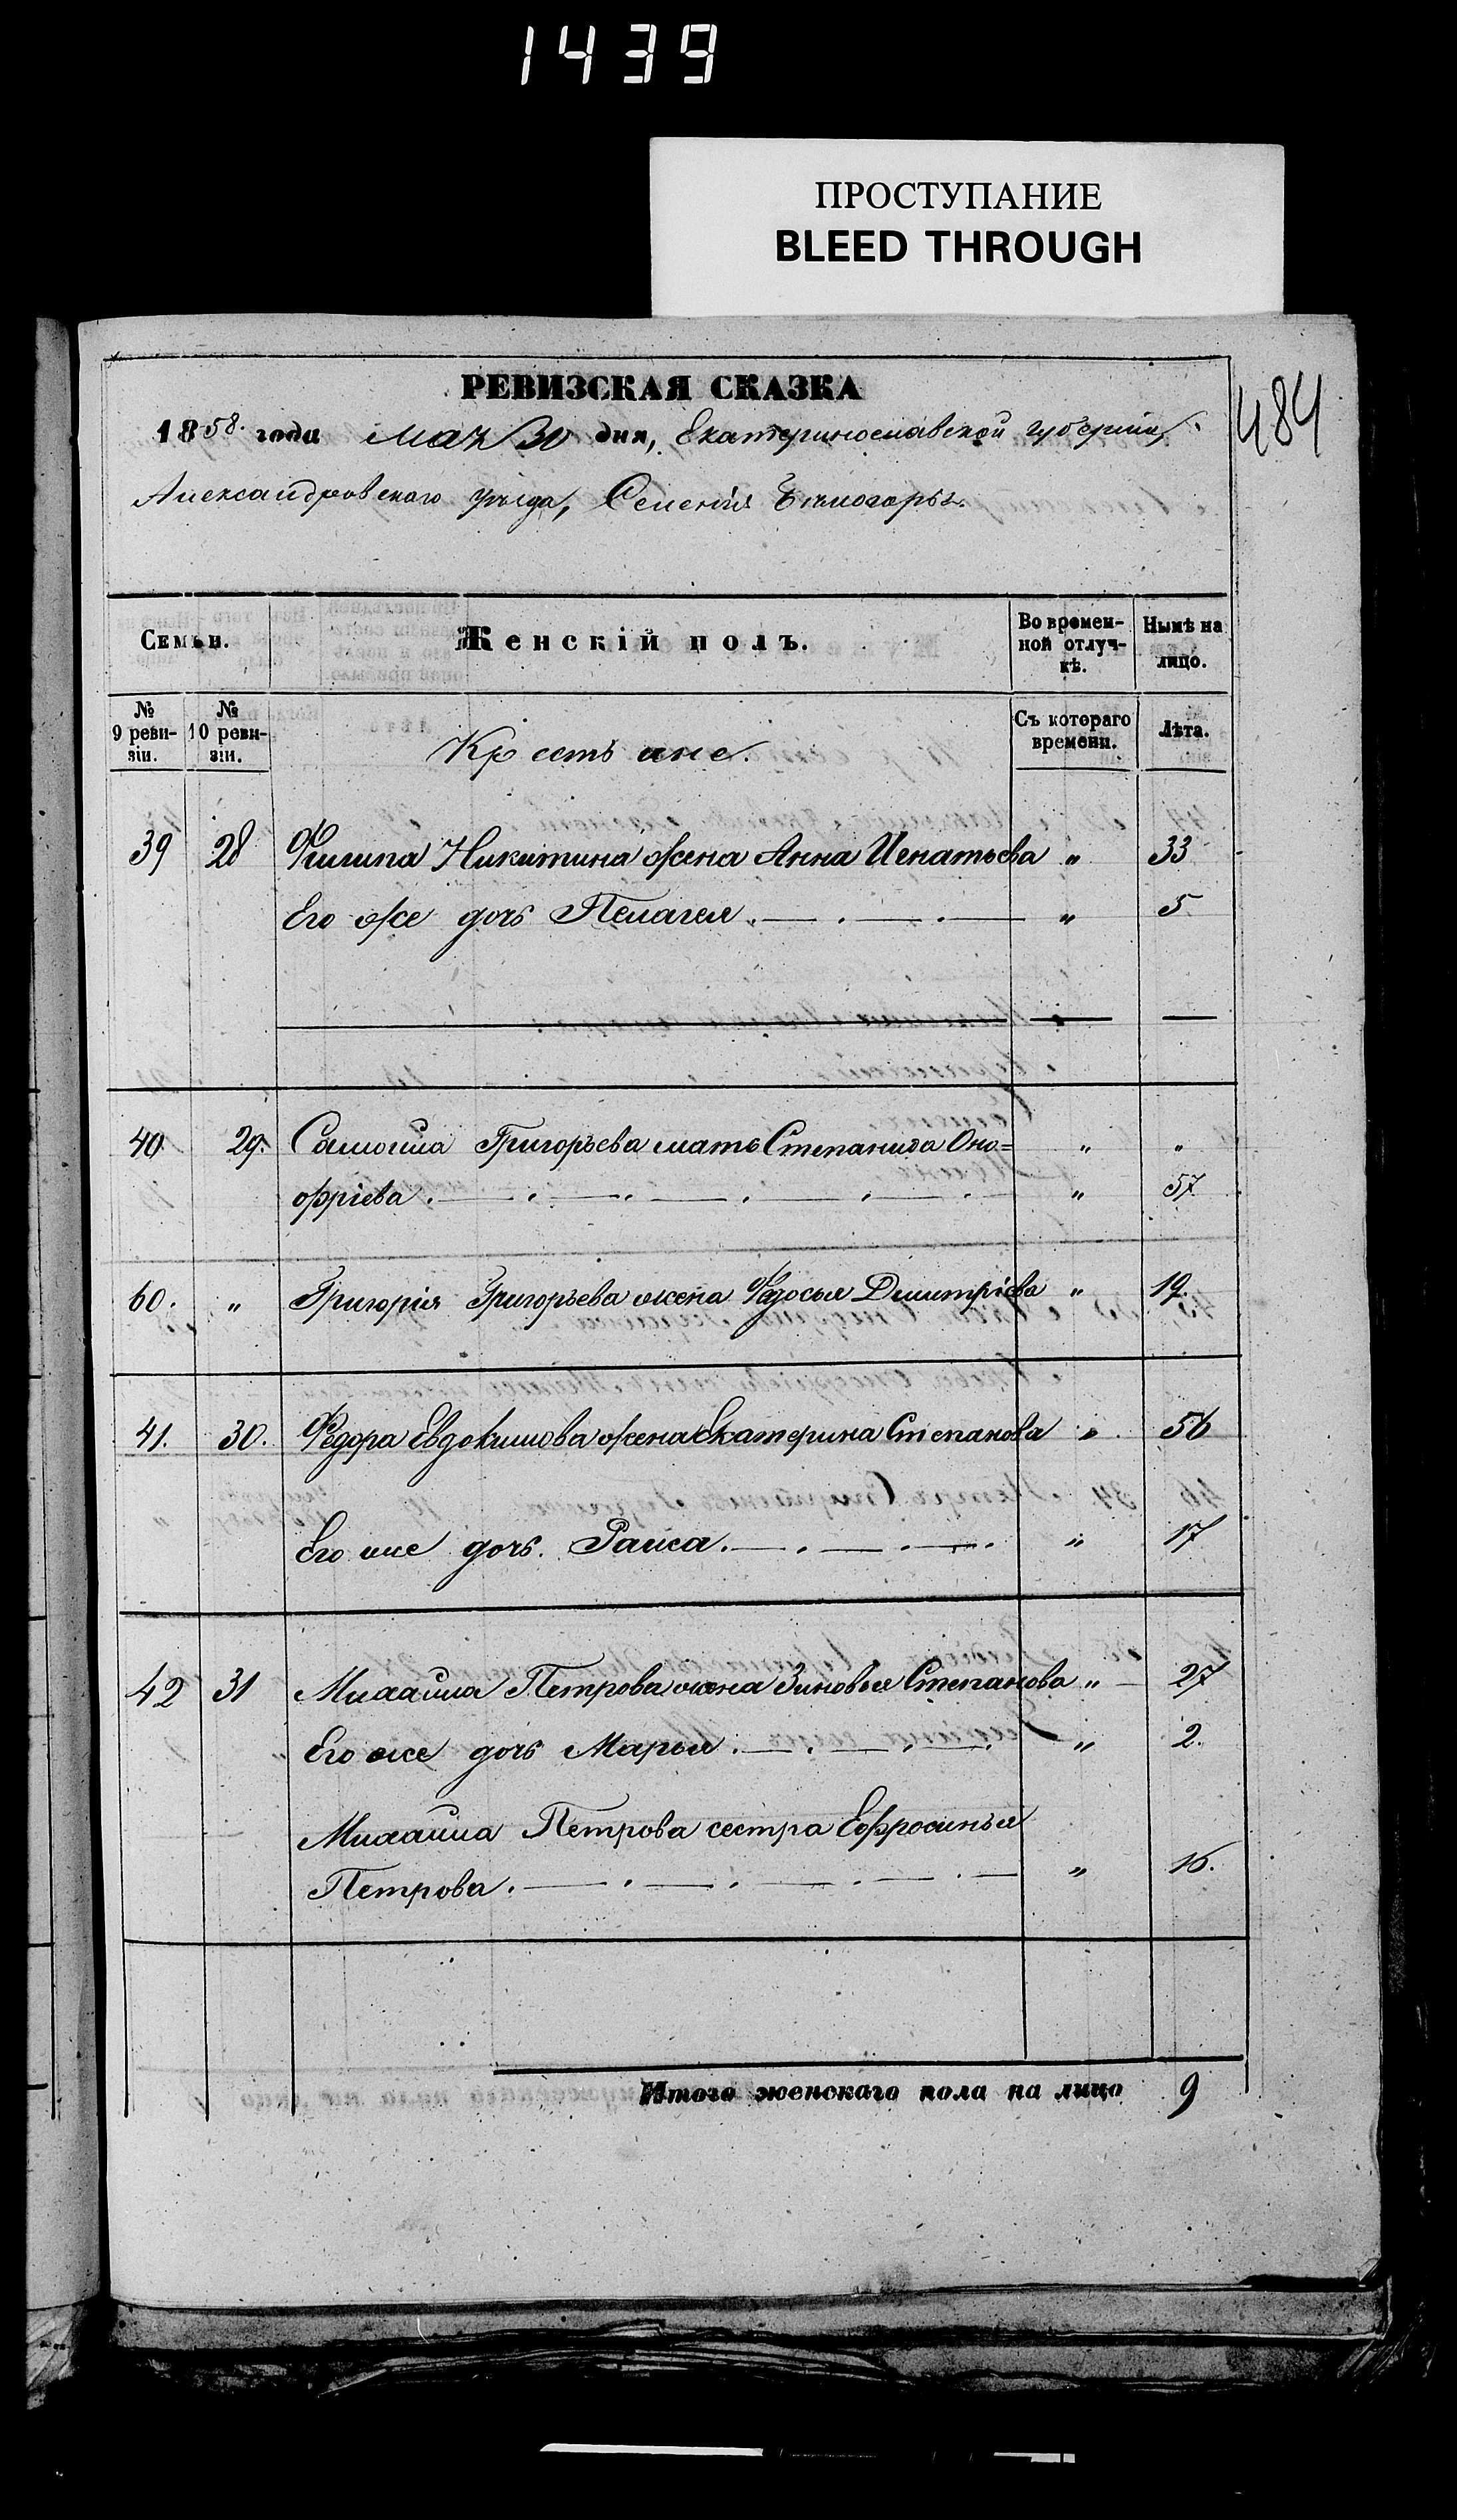 1439
ПРОСТУПАНИЕ
BLEED THROUGH
484
РЕВИЗСКАЯ СКАЗКА
1858. года Мая 30 дня, Екатеринославской губерніи,
Александровскаго уѣзда, Селенія
Семьи.
Женскій полъ.
Во времен-
ной отлуч-
кѣ.
Нынѣ на
лицо.
№
9 реви-
зіи.
№
10 реви-
зіи.
Крестьяне.
Съ котораго
времени.
Лѣта.
39 28 Филипа Никитина жена Анна Игнатьева " 33
Его же дочь Пелагея. " 5
40 29. Самоила Григорьева мать Степанида Оно= " "
офріева. " 57
60. " Григорія Григорьева жена Федосья Димитріева " 19.
41. 30. Федора Евдокимова жена Екатерина Степанова " 56
Его же дочь. Раиса. " 17
42 31 Михаила Петрова жена Зиновья Степанова " 27
Его же дочь Марья. " 2.
Михаила Петрова сестра Ефросинья
Петрова. " 16.
Итого женскаго пола на лицо 9